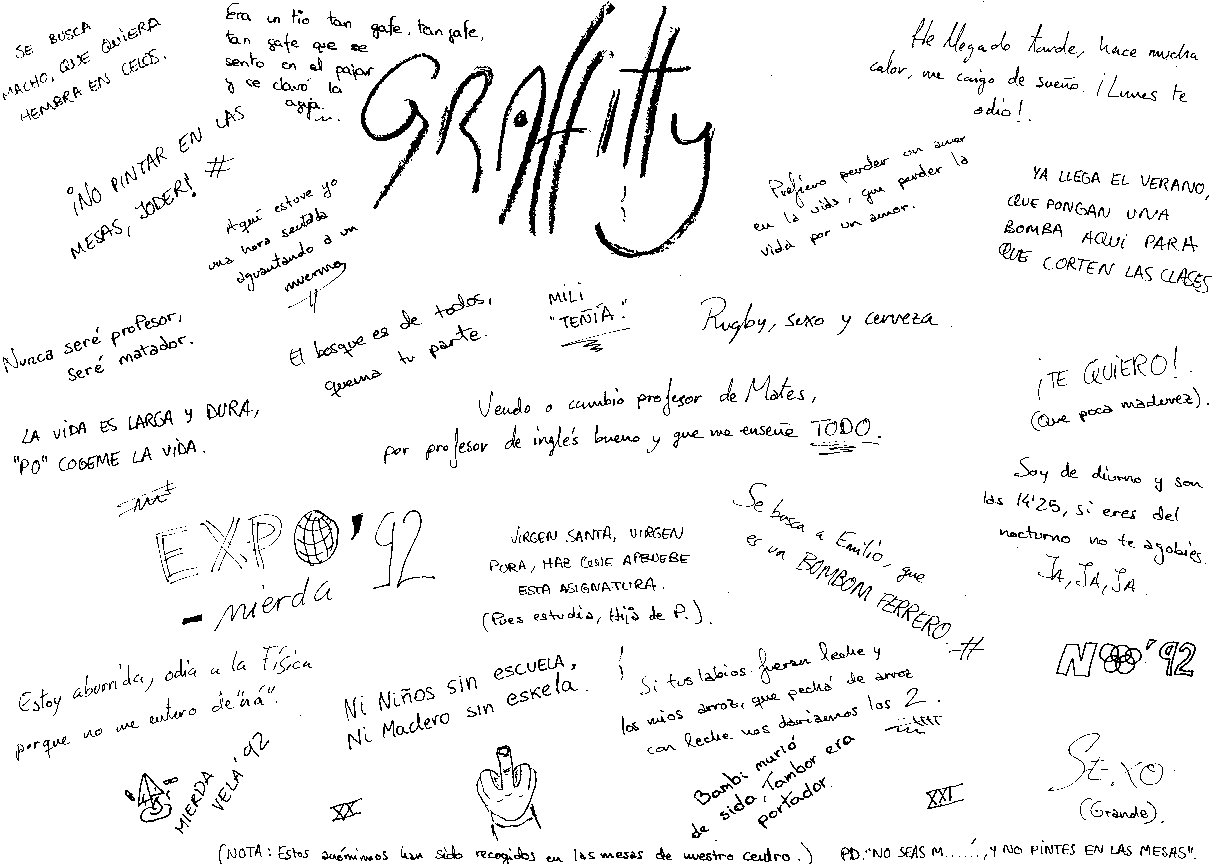 SE BUSCA
MACHO, QUE QUIERA
HEMBRA EN CELOS.
Era un tio tan gafe, tan gafe,
tan gafe que se
sento en el pajar
y se clavó la
aguja...
GRAffitty
He llegado tarde, hace mucha
calor, me caigo de sueño. ¡Lunes te
odio!.
¡NO PINTAR EN LAS
MESAS, JODER! #
Aquí estuve yo
una hora sentada
aguantando a un
muermo
Prefiero perder un amor
en la vida, que perder la
vida por un amor.
YA LLEGA EL VERANO,
QUE PONGAN UNA
BOMBA AQUÍ PARA
QUE CORTEN LAS CLASES
Nunca seré profesor,
seré matador.
El bosque es de todos,
quema tu parte.
MILI
"TEÑÍA".
Rugby, sexo y cerveza.
¡TE QUIERO!.
(Que poca madurez).
LA VIDA ES LARGA Y DURA,
"PO" COGEME LA VIDA.
Vendo o cambio profesor de Mates,
por profesor de inglés bueno y que me enseñe TODO.
Soy de diurno y son
las 14'25, si eres del
nocturno no te agobies.
JA, JA, JA.
EXPO'92
- mierda
VIRGEN SANTA, VIRGEN
PURA, HAZ QUE APRUEBE
ESTA ASIGNATURA.
(Pues estudia, Hija de P.).
Se busca a Emilio, que
es un BOMBOM FERRERO. #
Estoy aburrida, odio a la Física
porque no me entero de "ná".
Ni Niños sin escuela,
Ni Madero sin eskela.
Si tus labios fueran leche y
los mios arroz, que pechá de arroz
con leche nos dariamos los 2.
NO '92
MIERDA
VELA '92
XX
Bambi murió
de sida, Tambor era
portador.
XXI
SEXO
(Grande).
(NOTA: Estos anónimos han sido recogidos en las mesas de nuestro centro.) PD."NO SEAS M......, Y NO PINTES EN LAS MESAS".